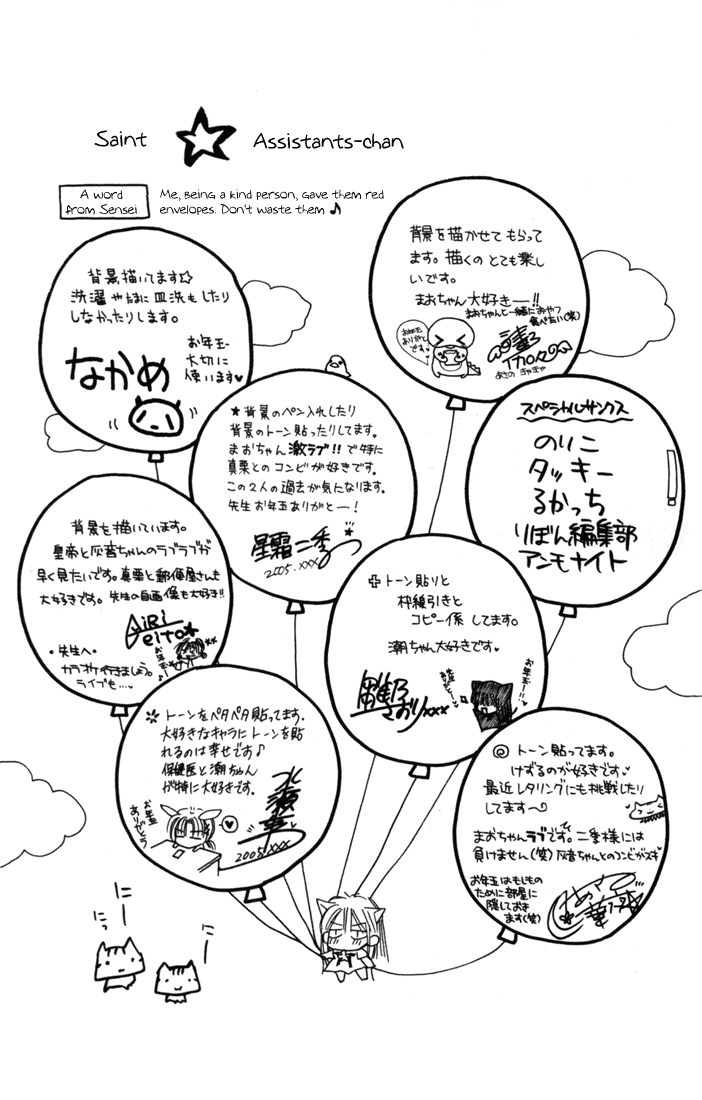 Saint ☆ Assistants-chan
A word
from Sensei
Me, being a kind person, gave them red
envelopes. Don't waste them ♪
背景を描かせて もらって
ます。描くの とても楽し
いです。
まおちゃん大好きー!!
まおちゃんと一緒におやつ
食べたい(笑)
お年玉
ありがとう
です。
あさの
背景描いてます☆
洗濯やたまに皿洗もしたり
しなかったりします。
なかめ
お年玉
大切に
使います♥
★背景のペン入れしたり
背景のトーン貼ったりしてます。
まおちゃん激ラブ!!で特に
真栗とのコンビが好きです。
この2人の過去が気になります。
先生お年玉ありがとー!
星霜二季
2005.xxx
スペシャルサンクス
のりこ
タッキー
るかっち
りぼん編集部
アンモナイト
背景を描いています。
皇帝と灰音ちゃんのラブラブが
早く見たいです。真栗と郵便屋さんも
大好きです。先生の自画像も大好き!!
AiRi
eito★
・先生へ・
カラオケ行きましょう。
ライブも…♥
トーン貼りと
枠線引きと
コピー係 してます。
潮ちゃん大好きです♥
さおりxxx
トーンをペタペタ貼ってます。
大好きなキャラにトーンを貼
れるのは幸せです♪
保健医と潮ちゃん
が特に大好きです。
お年玉
ありがとう
2005.xxx
◎ トーン貼ってます。
けずるのが好きです♥
最近レタリングにも挑戦したり
してます〜
まおちゃんラブです。二季様には
負けません(笑)灰音ちゃんとのコンビがスキ
お年玉はもしもの
ために部屋に
隠しておき
ます(笑)
にー
にっ
にー